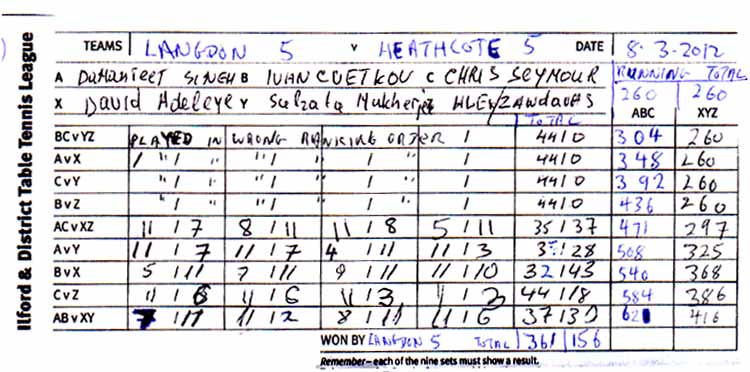 Ilford & District Table Tennis League
TEAMS LANGDON 5 V HEATHCOTE 5 DATE 8·3·2012
A DAMANJEET SINGH B IVAN CVETKOV C CHRIS SEYMOUR RUNNING TOTAL
X David Adeleye Y Sukata Mukherjee 260 260
TOTAL ABC XYZ
BCvYZ PLAYED IN WRONG RANKING ORDER / 44/0 304 260
AvX / " / " / " / " / 44/0 348 260
CvY " / " / " / " / 44/0 392 260
BvZ " / " / " / " / 44/0 436 260
ACvXZ 11/7 8/11 11/8 5/11 35/37 471 297
AvY 11/7 11/7 4/11 11/3 37/28 508 325
BvX 5/11 7/11 9/11 11/10 32/43 540 368
CvZ 11/6 11/6 11/3 11/3 44/18 584 386
ABvXY 7/11 11/2 8/11 11/6 37/30 621 416
WON BY LANGDON 5 TOTAL 361/156
Remember – each of the nine sets must show a result.